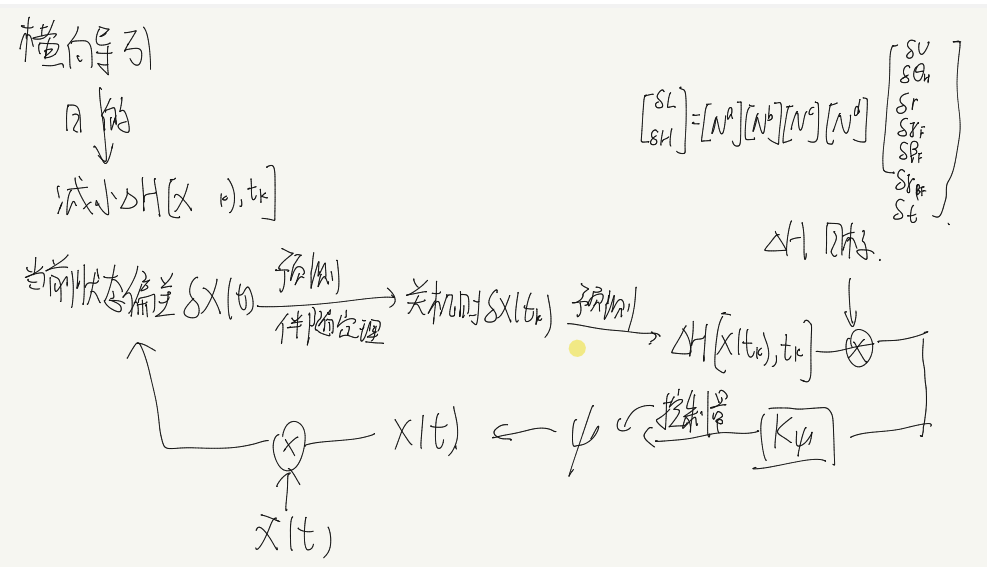 横向导引
目的
减小ΔH[X k),tₖ]
[δL δH] = [Nᵃ][Nᵇ][Nᶜ][Nᵈ]
δV
δθₕ
δr
δγF
δβF
δγβF
δt
ΔH 目标.
当前状态偏差 δX(t)
预测
伴随定理
关机时 δX(tₖ)
预测
ΔH[X(tₖ),tₖ]
X
Kψ
控制器
ψ
X(t)
X
X̄(t)